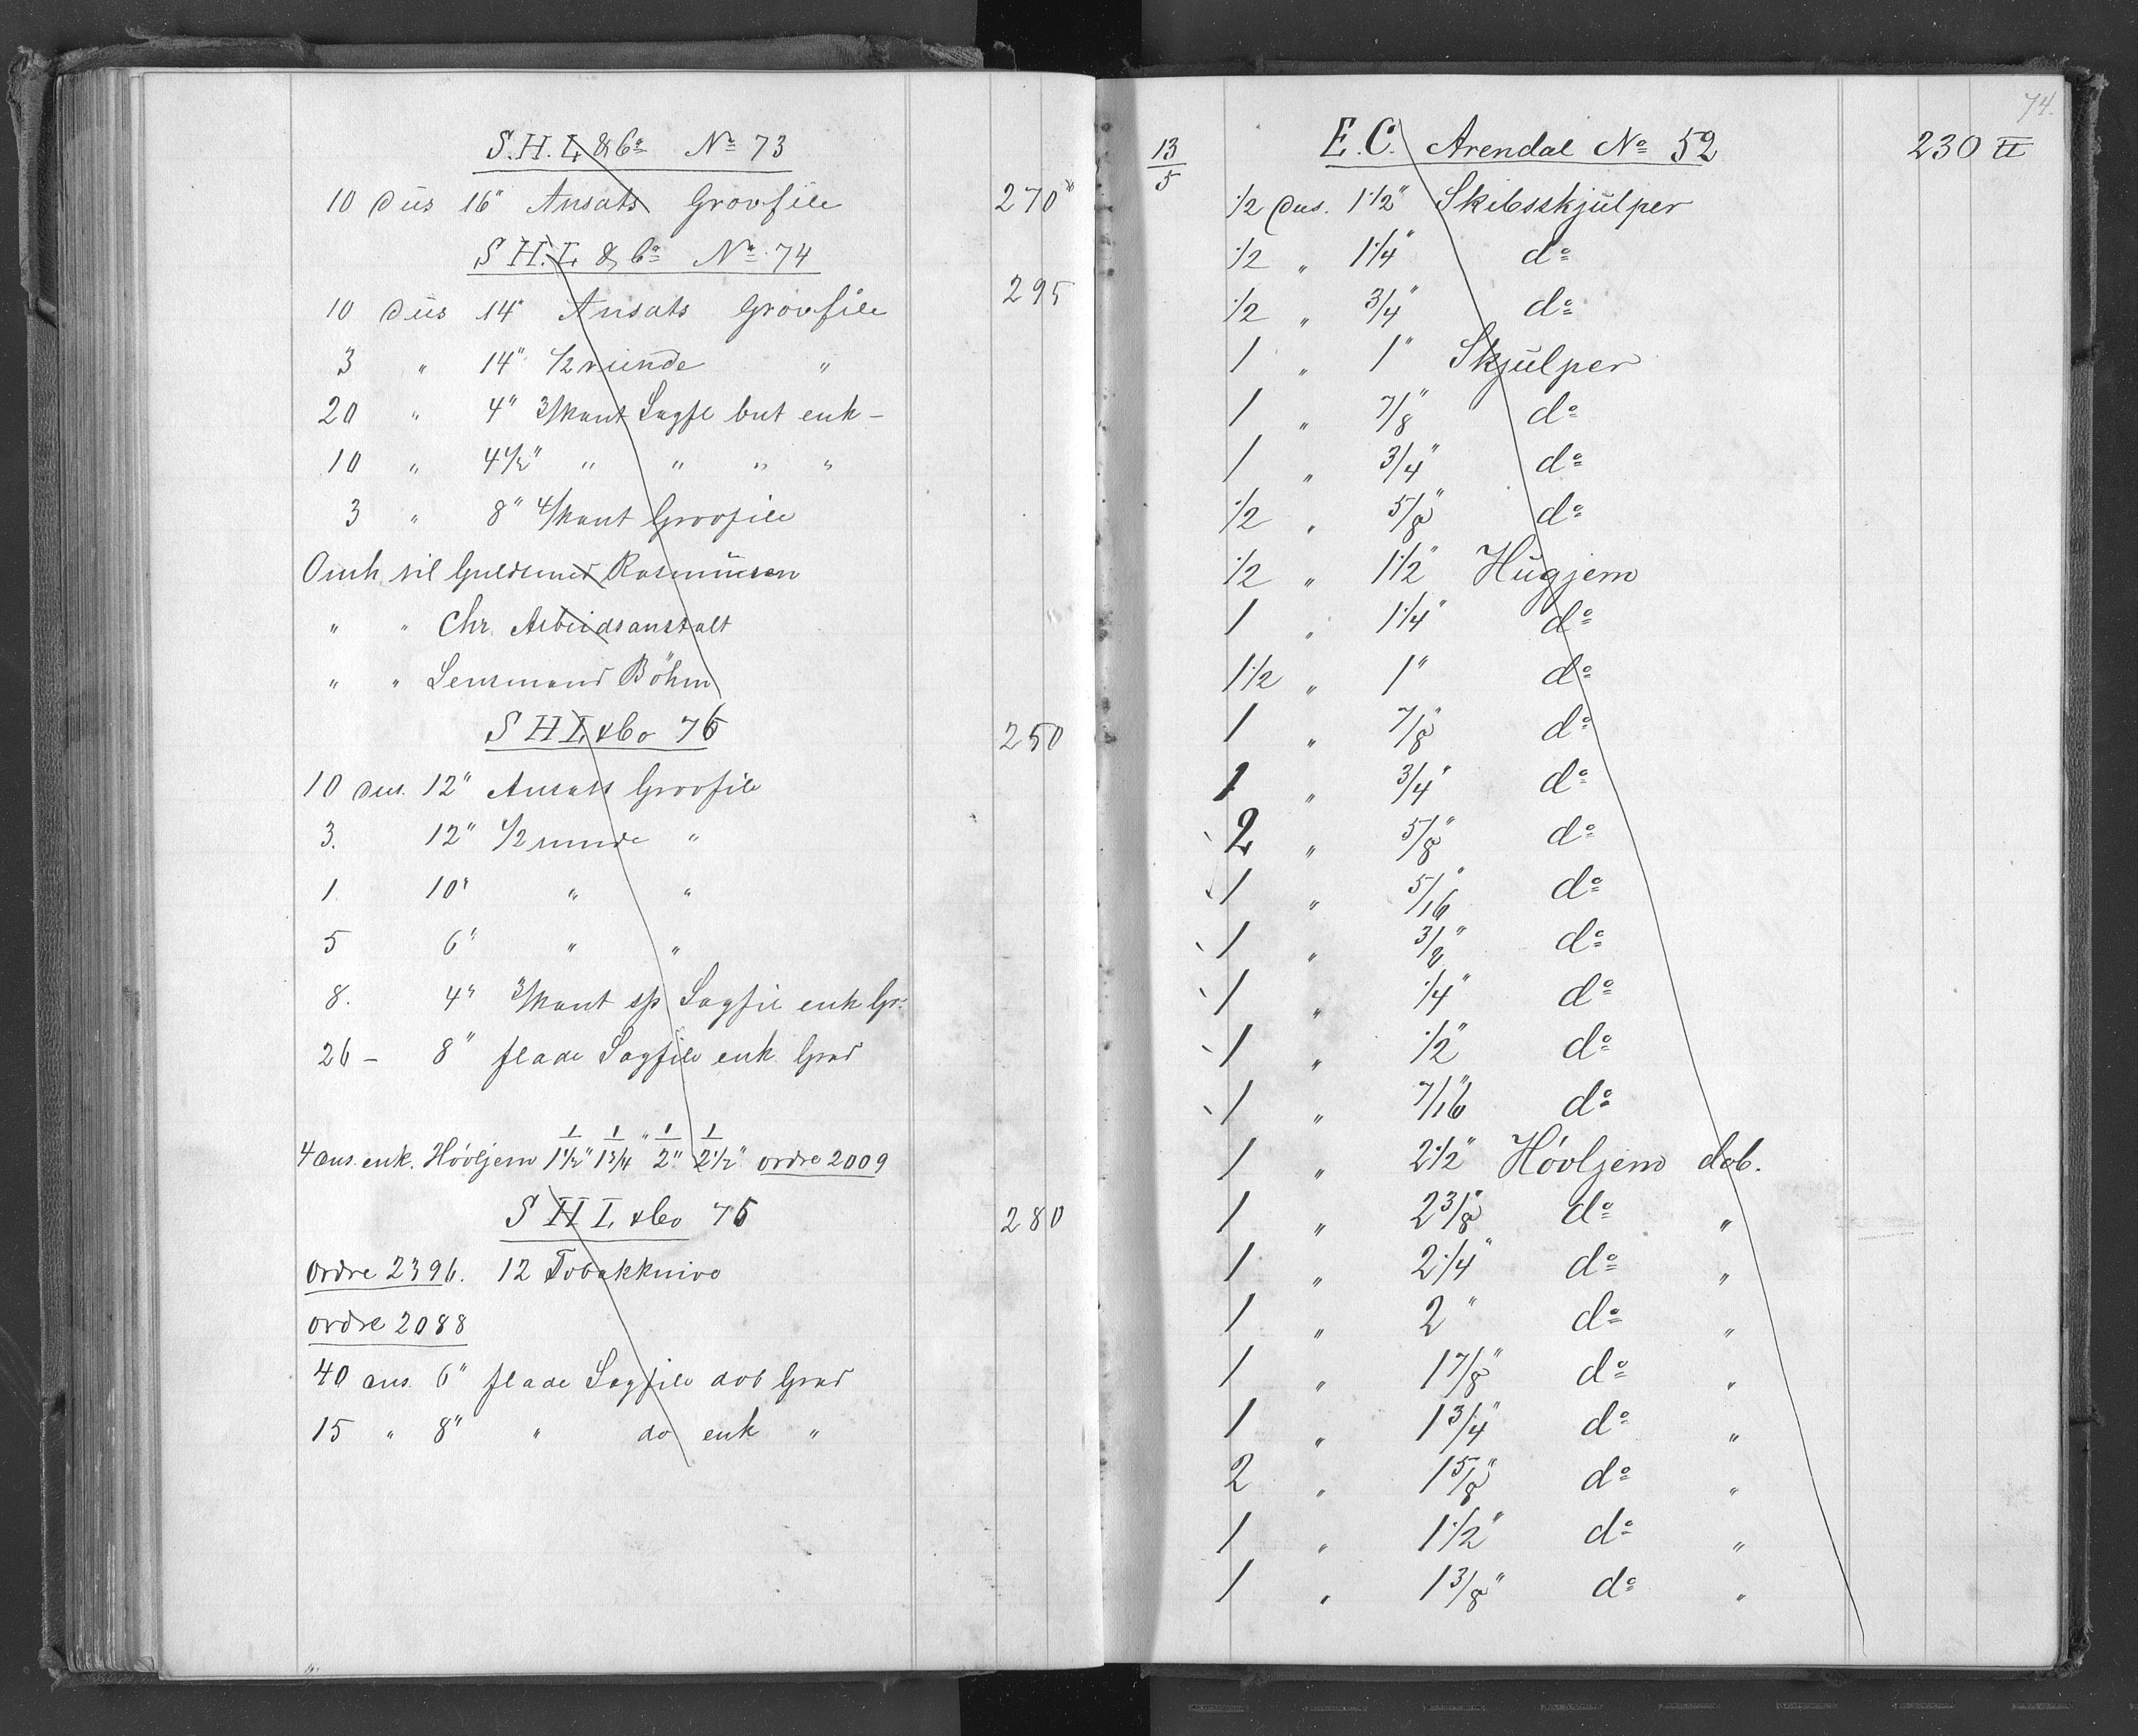 S.H.L & Co No 73
10 dus 16" Ansats Grovfile 270
S.H.L & Co No 74
295
10 dus 14" Ansats Grovfile
3 " 14" 1/2 runde "
20 " 4" 3/kant Sagfl but enk -
10 " 4 1/2" " " " "
3 " 8" 4/kant Grovfile
Omh til Guldsmed Rasmussen
" " Chr. Arbeidsanstalt
" " Lensmand Böhm
S H L & Co 75 250
10 dus. 12" Ansats Grovfile
3. 12" 1/2 runde "
1. 10" " "
5 6" " "
8. 4" 3/kant sp Sagfil enk Gr.
26 - 8" flade Sagfile enk. Grad
1 1 1 1
4 dus. enk. Høvljern 1 1/2" 1 3/4" 2" 2 1/2" ordre 2009
S H L & Co 76 280
Ordre 2396. 12 Tobakknive
Ordre 2088
40 dus. 6" flade Sagfile dob Grad
15 " 8" " do enk "
74.
13/5 E.C. Arendal No 52 230 ℔
1/2 dus. 1 1/2" Skibsskjulper
1/2 " 1 1/4" do
1/2 " 3/4" do
1 " 1" Skjulper
1 " 7/8" do
1 " 3/4" do
1/2 " 5/8" do
1/2 " 1 1/2" Hugjern
1 " 1 1/4" do
1 1/2 " 1" do
1 " 7/8" do
1 " 3/4" do
2 " 5/8" do
1 " 5/16" do
1 " 3/8" do
1 " 1/4" do
1 " 1/2" do
1 " 7/16" do
1 " 2 1/2" Høvljern dob.
1 " 2 3/8" do "
1 " 2 1/4" do "
1 " 2" do "
1 " 1 7/8" do "
1 " 1 3/4" do "
2 " 1 5/8" do "
1 " 1 1/2" do "
1 " 1 3/8" do "